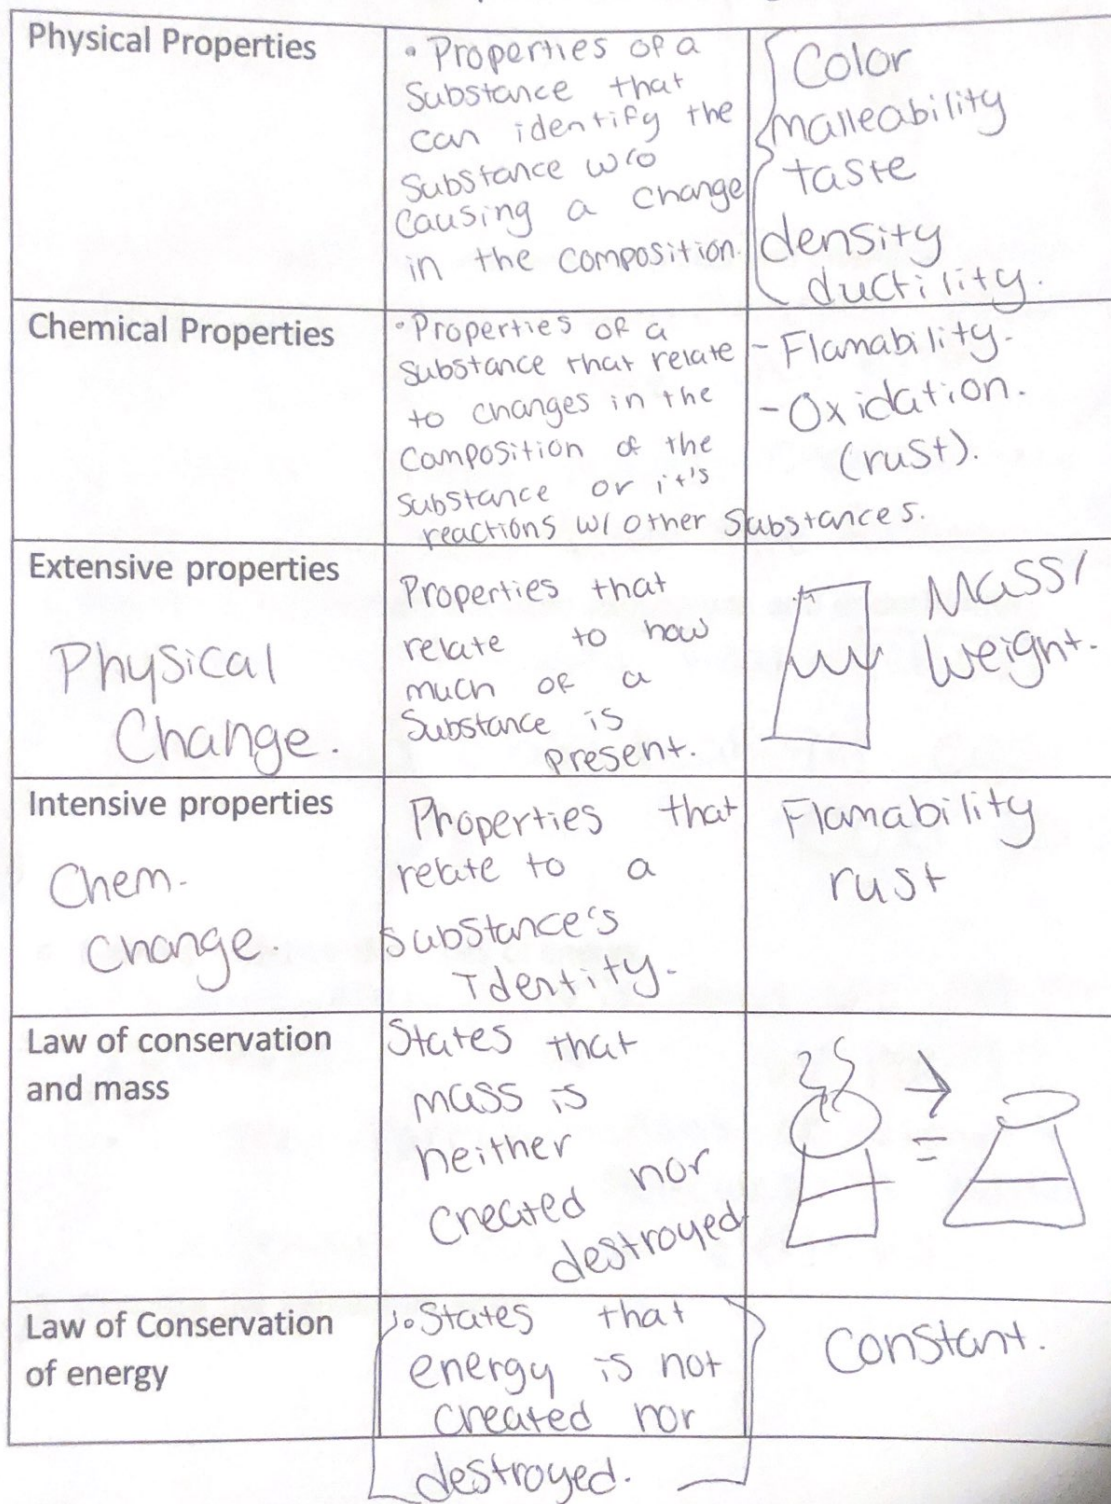 Physical Properties
• Properties of a
Substance that
can identify the
Substance w/o
Causing a change
in the composition.
Color
malleability
taste
density
ductility.
Chemical Properties
• Properties of a
Substance that relate
to changes in the
Composition of the
Substance or it's
reactions w/ other Substances.
- Flamability.
- Oxidation.
(rust).
Extensive properties
Physical
Change.
Properties that
relate to how
much of a
Substance is
present.
Mass/
Weight.
Intensive properties
Chem.
Change.
Properties that
relate to a
Substance's
Identity.
Flamability
rust
Law of conservation
and mass
States that
mass is
neither
created nor
destroyed
=
Law of Conservation
of energy
• States that
energy is not
created nor
destroyed.
Constant.